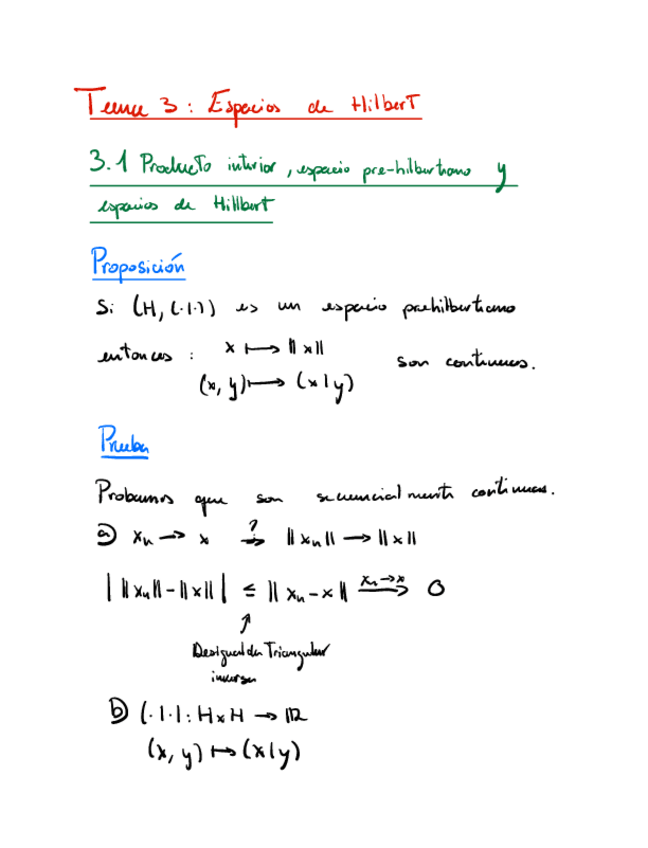 Tema 3: Espacios de Hilbert
3.1 Producto interior, espacio pre-hilbertiano y
espacios de Hillbert
Proposición
Si (H, (·|·)) es un espacio prehilbertiano
entonces : x ⟼ ||x||
(x, y) ⟼ (x|y) son continuas.
Prueba
Probamos que son secuencialmente continuas.
a) xₙ → x ?⇒ ||xₙ|| → ||x||
| ||xₙ|| - ||x|| | ≤ ||xₙ - x|| xₙ→x ⟶ 0
↗
Desigualdad Triangular
inversa
b) (·|·): H×H → ℝ
(x, y) ↦ (x|y)